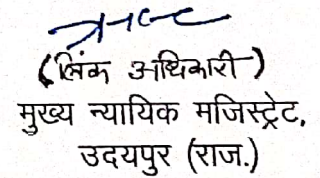 (लिंक अधिकारी)
मुख्य न्यायिक मजिस्ट्रेट,
उदयपुर (राज.)